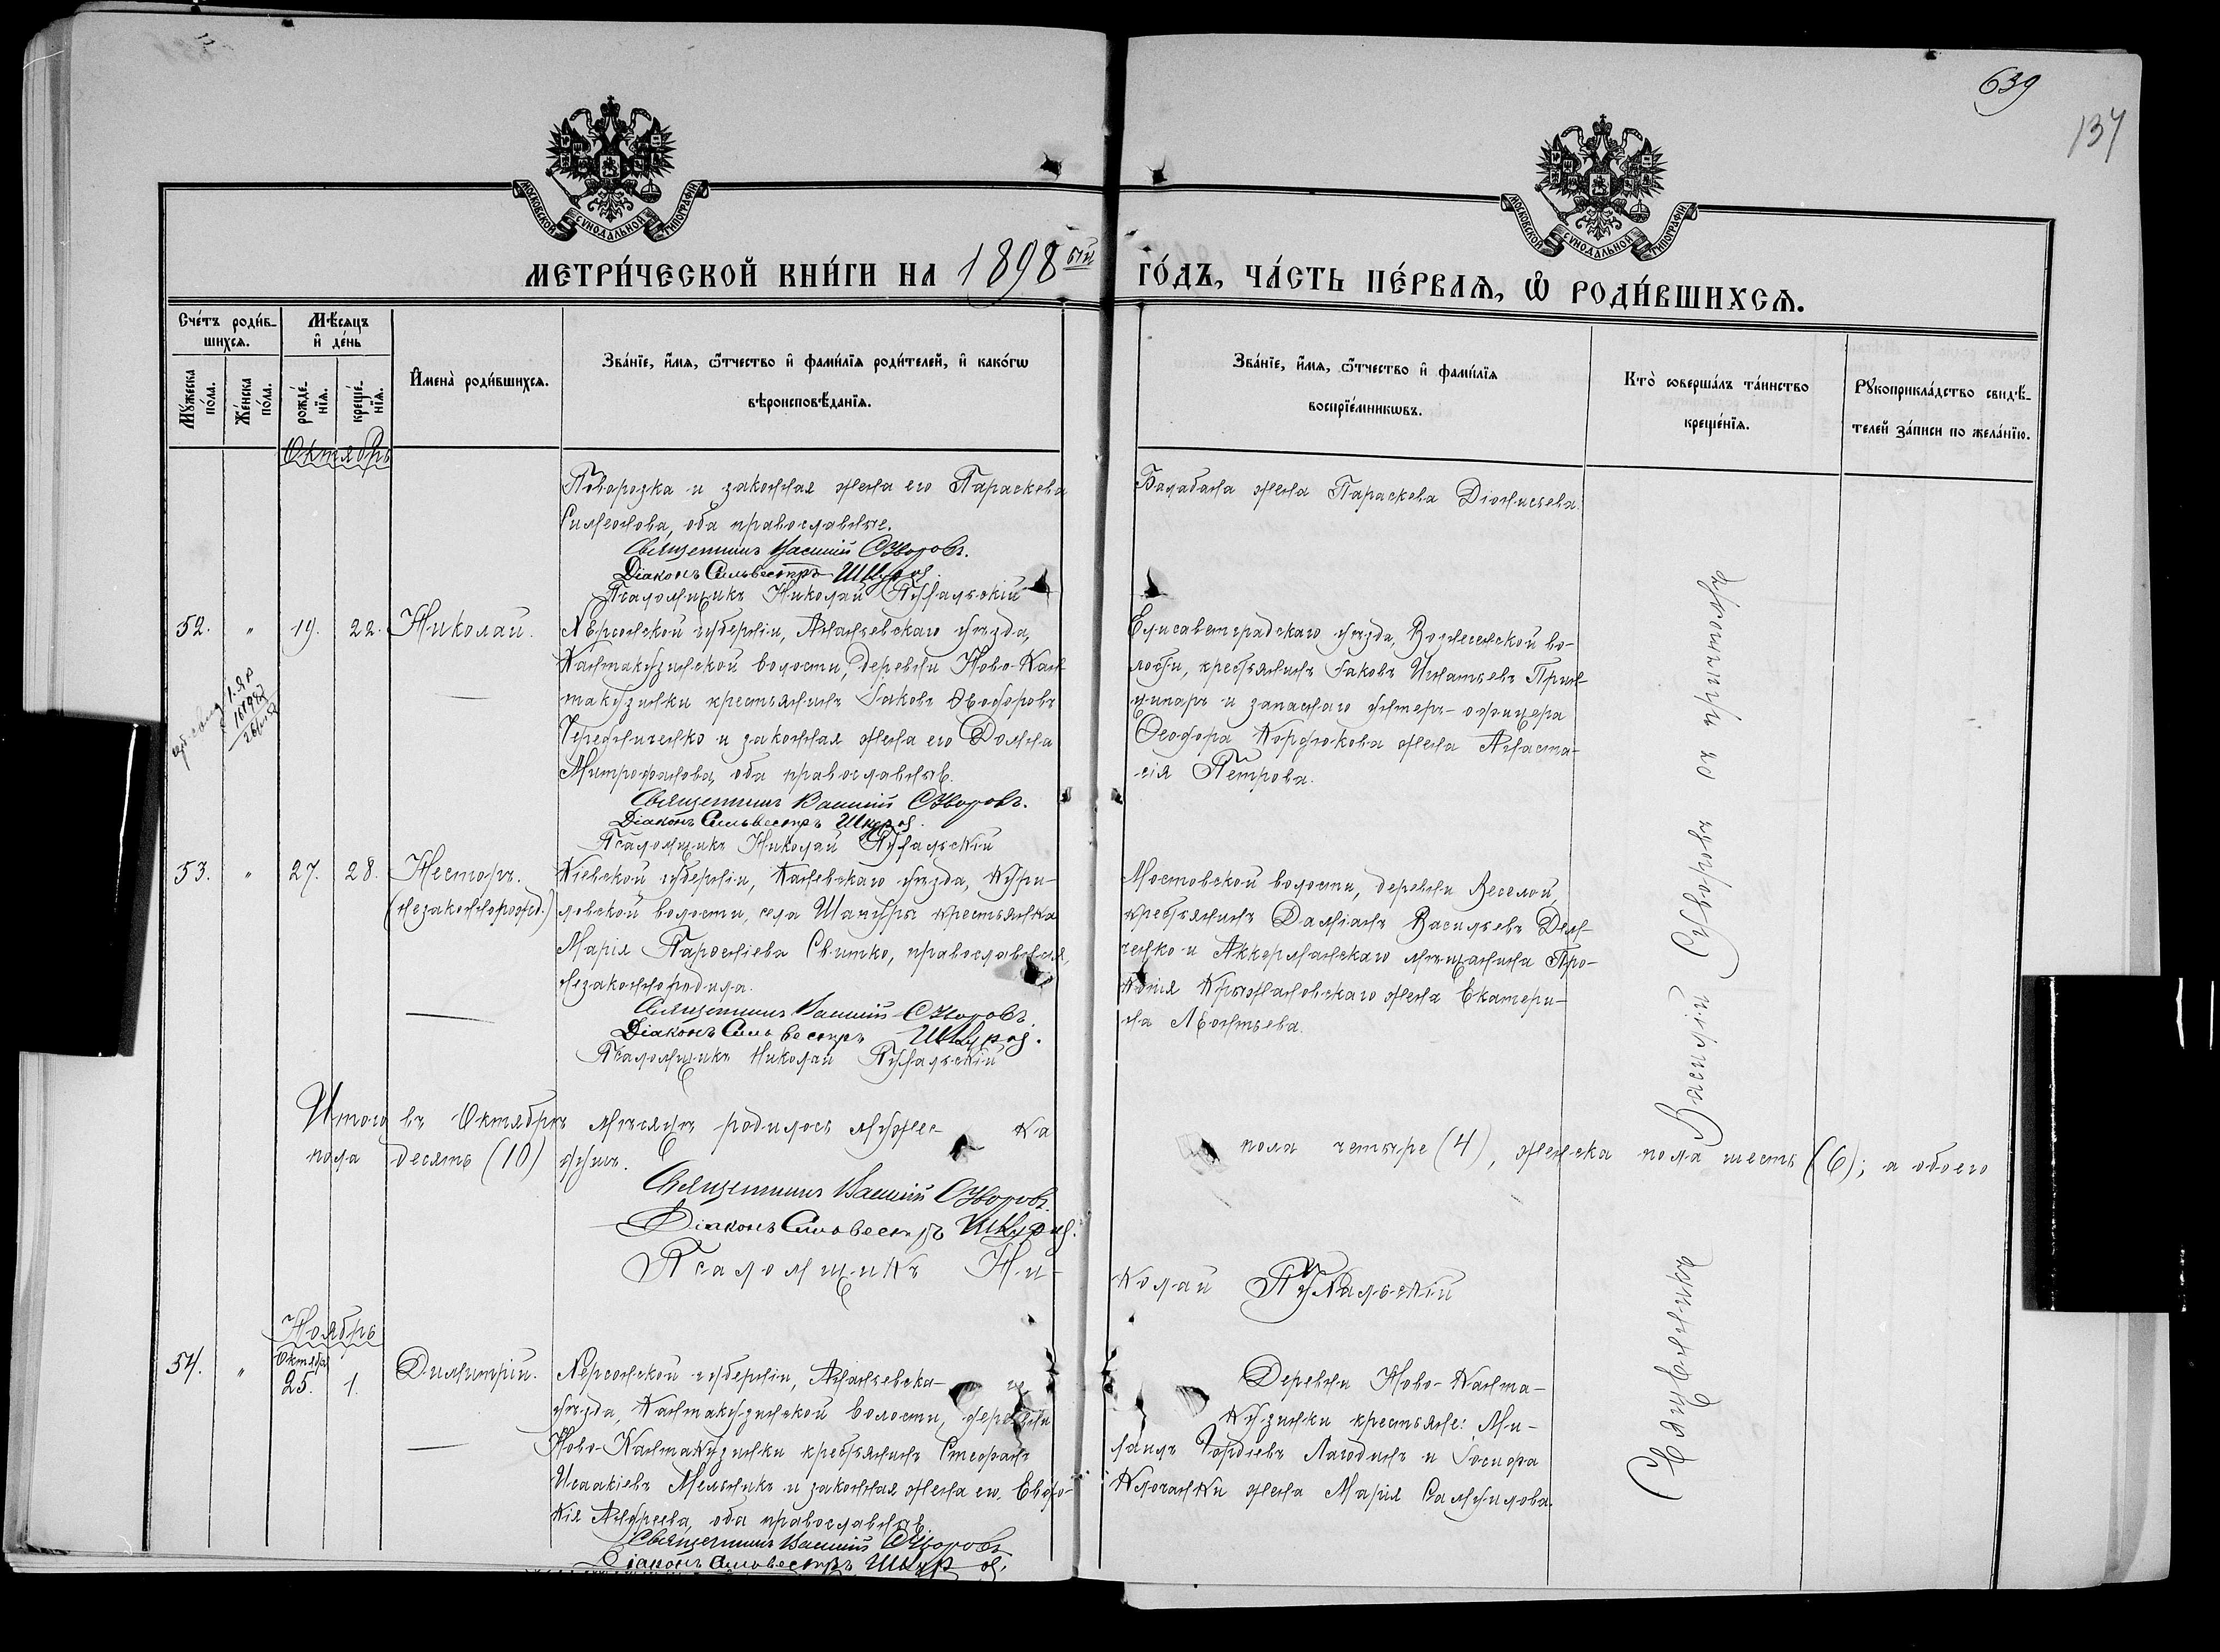 639
137
МОСКОВСКОЙ СУНОДАЛЬНОЙ ТИПОГРАФІИ
МОСКОВСКОЙ СУНОДАЛЬНОЙ ТИПОГРАФІИ
МЕТРИ́ЧЕСКОЙ КНИ́ГИ НА 1898 ый
ГО́ДЪ, ЧА́СТЬ ПЕ́РВАѦ, Ѡ РОДИ́ВШИХСѦ.
Сче́тъ роди́в-
шихсѧ.
Мѣ́сѧцъ
и҆ де́нь
Мꙋ́жеска
по́ла.
Же́нска
по́ла.
рожде́-
нїѧ.
креще́-
нїѧ.
И҆мена̀ роди́вшихсѧ.
Зва́нїе, и҆́мѧ, ѻ҆́тчество и҆ фами́лїѧ роди́телей, и҆ како́гѡ
вѣроисповѣ́данїѧ.
Зва́нїе, и҆́мѧ, ѻ҆́тчество и҆ фами́лїѧ
воспрїе́мникѡвъ.
Кто̀ соверша́лъ та́инство
креще́нїѧ.
Рꙋкоприкла́дство свидѣ́-
телей за́писи по жела́нїю.
Октябрь
Поворозка и законная жена его Параскева
Симеонова, оба православные.
Священникъ Василій Суворовъ.
Діаконъ Сильвестръ Шкура.
Псаломщикъ Николай
Балабана жена Параскева Діонисьева.
52. " 19. 22. Николай.
Херсонской губерніи, Ананьевскаго уѣзда,
Кантакузинской волости, деревни Ново-Кан-
такузинки крестьянинъ Іаковъ Ѳеодоровъ
Чередниченко и законная жена его Домна
Митрофанова, оба православные.
Священникъ Василій Суворовъ.
Діаконъ Сильвестръ Шкура.
Псаломщикъ Николай
Елисаветградскаго уѣзда, Вознесенской во-
лости, крестьянинъ Іаковъ Игнатьевъ Прин-
ципаръ и запаснаго унтеръ-офицера
Ѳеодора Кордюкова жена Анаста-
сія Петрова.
53. " 27. 28. Несторъ.
(незаконнорожд.)
Кіевской губерніи, Каневскаго уѣзда,
ловской волости, села крестьянка
Марія Парѳеніева Свитко, православная,
незаконнородила.
Священникъ Василій Суворовъ.
Діаконъ Сильвестръ Шкура.
Псаломщикъ Николай
Мостовской волости, деревни Веселой,
крестьянинъ Даміанъ Васильевъ Дем-
ченко и Аккерманскаго мѣщанина Про-
копія Крыжановскаго жена Екатери-
на Леонтьева.
Итого въ Октябрѣ мѣсяцѣ родилось мужес- ка
пола четыре (4), женска пола шесть (6); а обоего
пола десять (10) душъ.
Священникъ Василій Суворовъ.
Діаконъ Сильвестръ Шкура.
Псаломщикъ Ни-
колай
Ноябрь
Октября
54. " 25. 1. Димитрій.
Херсонской губерніи, Ананьевска- го
уѣзда, Кантакузинской волости, деревни
Ново-Кантакузинки крестьянинъ Стефанъ
Исаакіевъ Мельникъ и законная жена его Евдо-
кія Андреева, оба православные.
Священникъ Василій Суворовъ
Діаконъ Сильвестръ Шкура.
Деревни Ново-Канта-
кузинки крестьяне: Ми-
хаилъ Гордіевъ Лагодинъ и Іосифа
Клочанки жена Марія Самуилова.
Священникъ Василій Суворовъ съ причтомъ